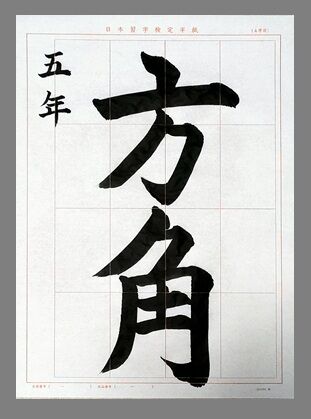 日本習字検定半紙
五年
方角